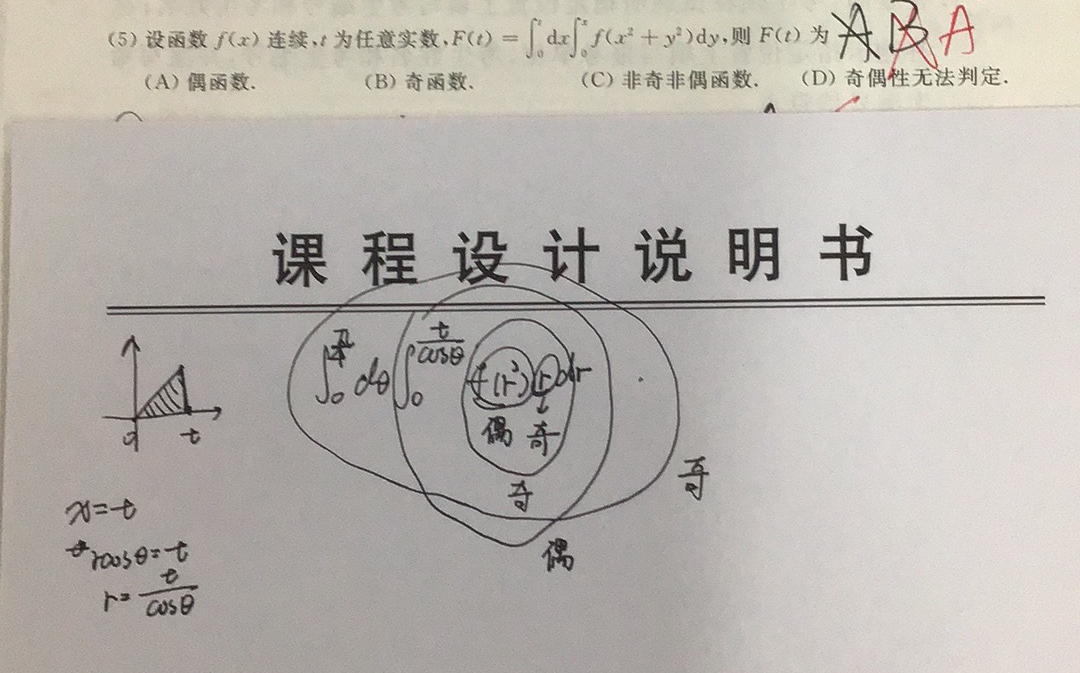 (5) 设函数 f(x) 连续,t 为任意实数,F(t) = ∫₀ᵗ dx∫₀ˣ f(x² + y²)dy,则 F(t) 为 A B A
(A) 偶函数. (B) 奇函数. (C) 非奇非偶函数. (D) 奇偶性无法判定.
课程设计说明书
∫₀^(π/4) dθ ∫₀^(t/cosθ) f(r²) r dr
偶 奇
0 t
奇
奇
偶
x=t
rcosθ=t
r= t/cosθ